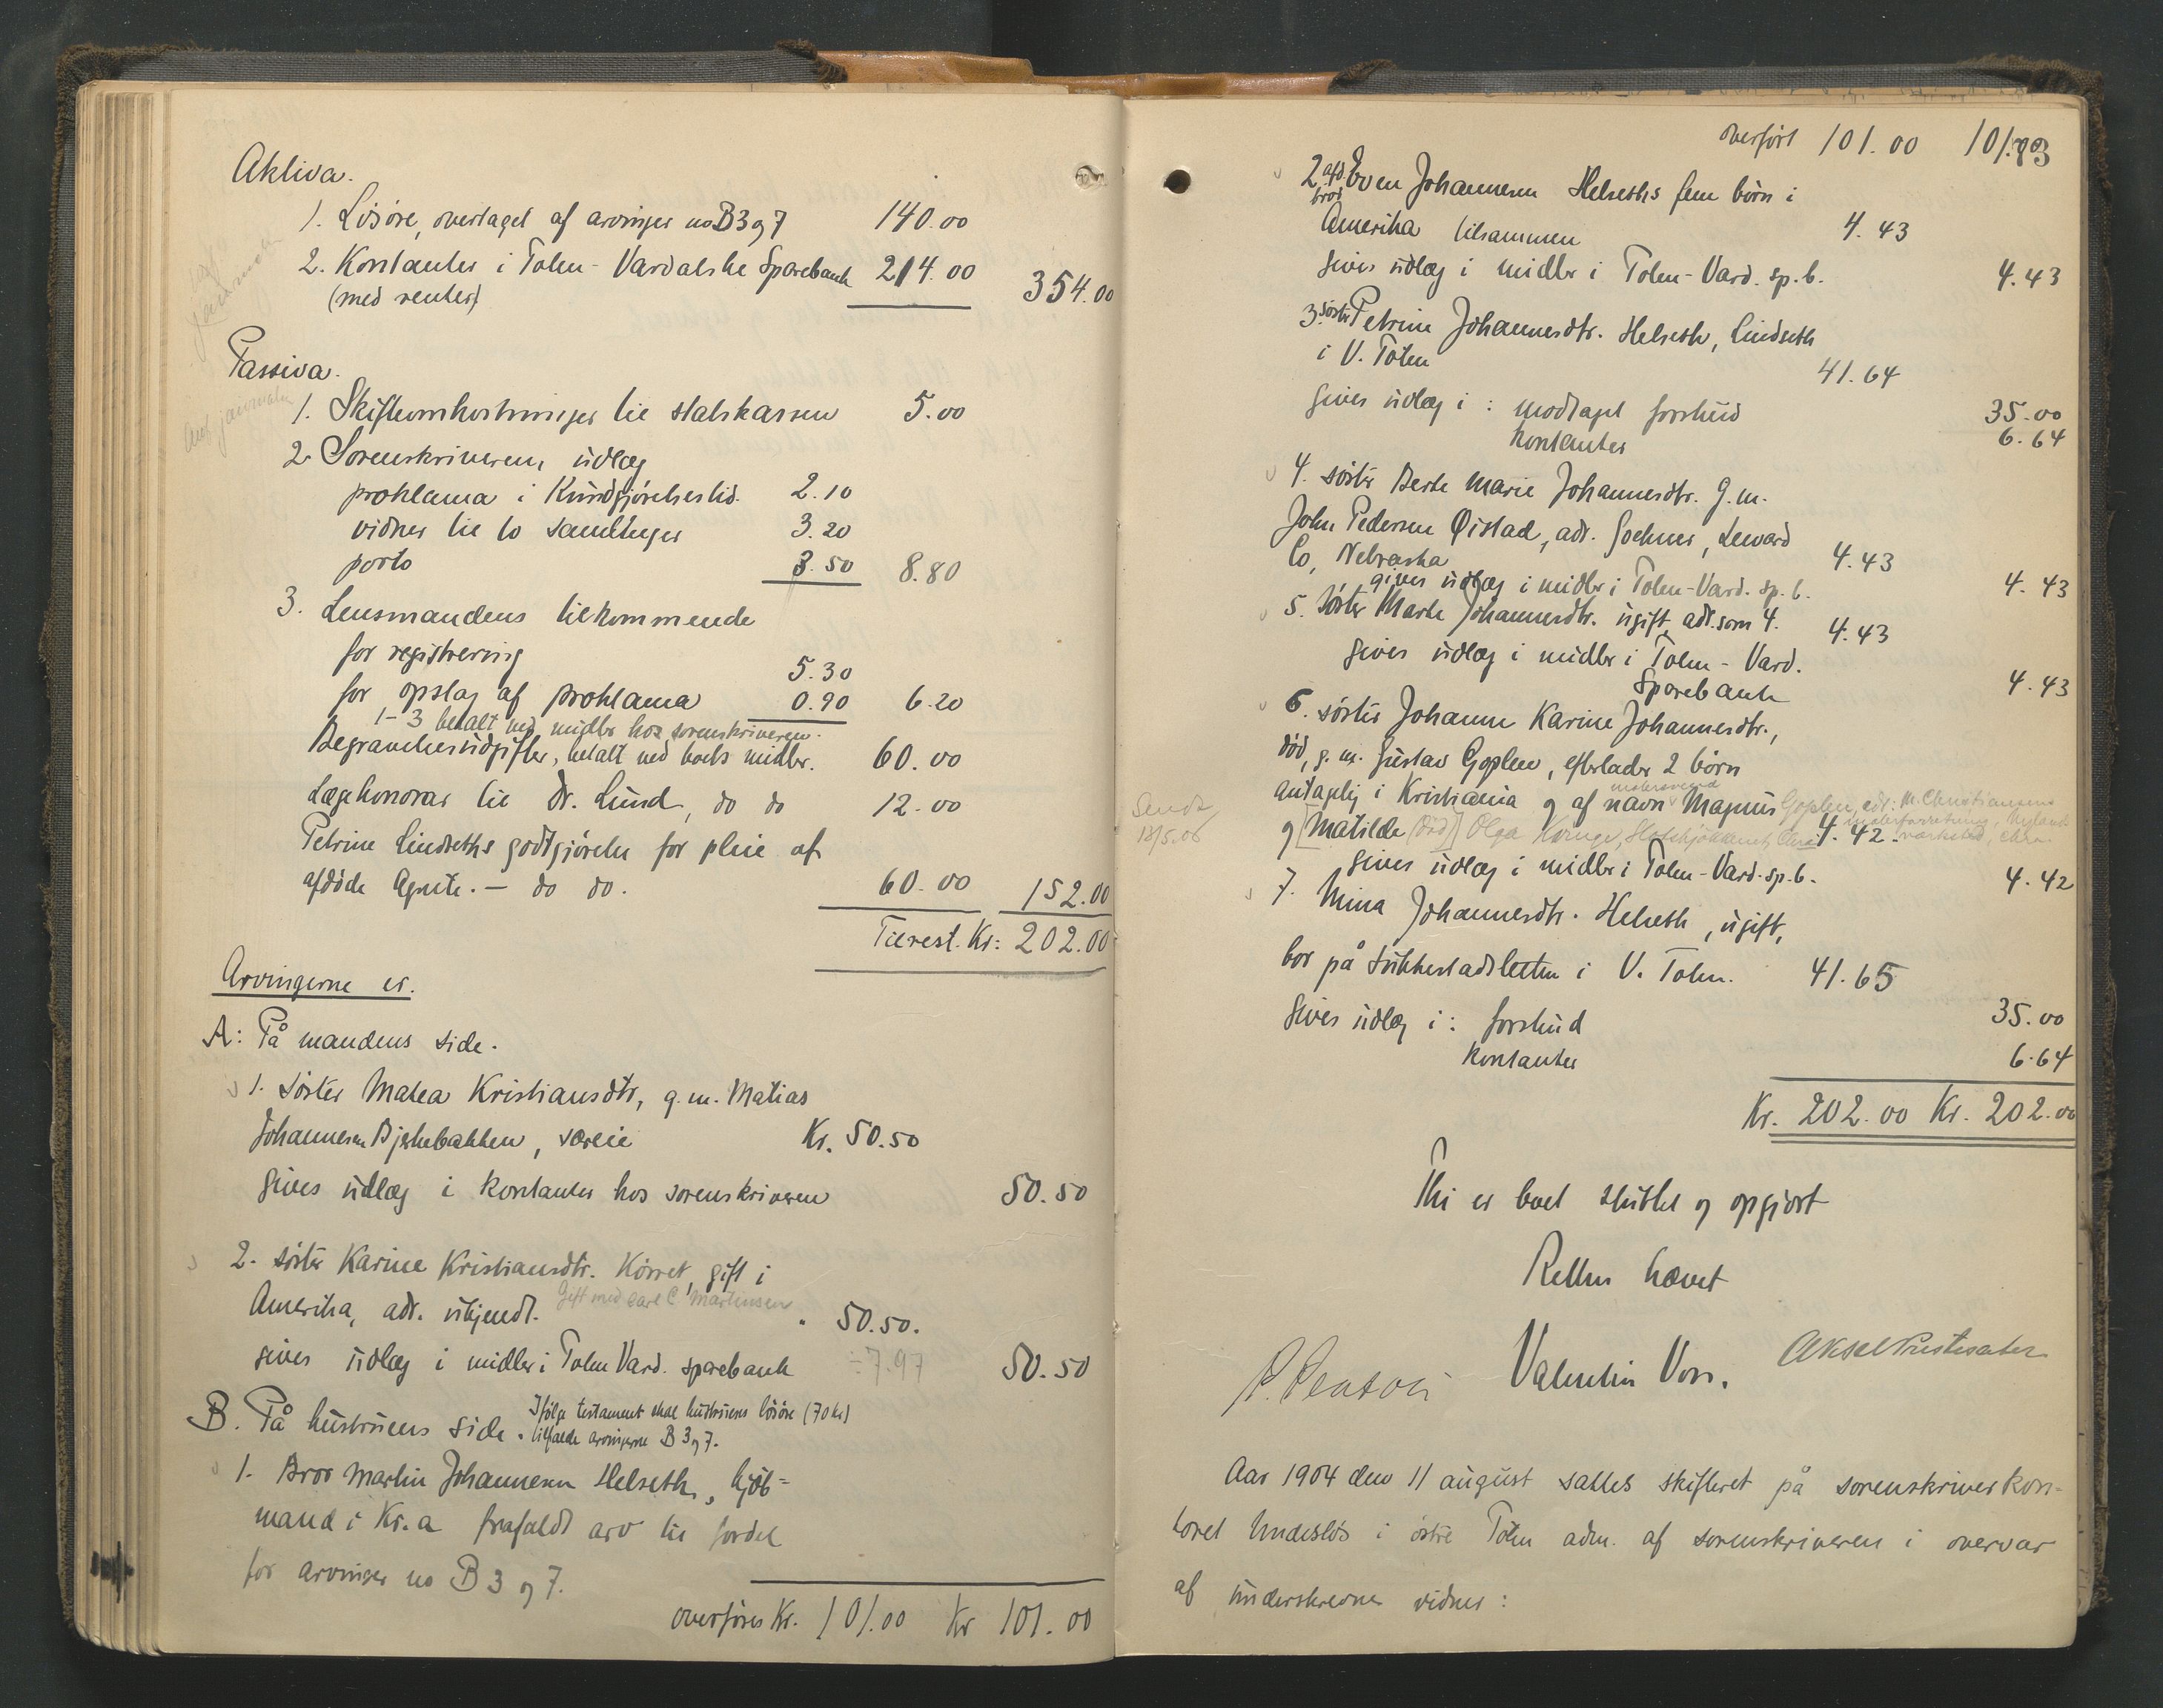 Aktiva.
1. Lösöre, overtaget af arvinger no B 3 og 7 140.00
2. Kontanter i Toten-Vardalske Sparebank 214.00 354.00
(med renter)
Passiva.
1. Skifteomkostninger til statskassen 5.00
2. Sorenskriverens udlæg
proklama i Kundgjörelsestid. 2.10
vidner til to samlinger 3.20
porto 3.50 8.80
3. Lensmandens tilkommende
for registrering 5.30
for opslag af proklama 0.90 6.20
1-3 betalt ved midler hos sorenskriveren.
Begravelsesudgifter, betalt ved boets midler. 60.00
Lægehonorar til Dr. Lund, do do 12.00
Petrine Lindseths godtgjörelse for pleie af
afdöde Agnete. — do do. 60.00 152.00
Tilrest. Kr: 202.00
Arvingerne er.
A: På mandens side.
1. Söster Matea Kristiansdtr, g.m. Matias
Johannesen Bjerkebakken, særeie Kr. 50.50
gives udlæg i kontanter hos sorenskriveren 50.50
2. söster Karine Kristiansdtr. Hörret, gift i
Amerika, adr. ukjendt. Gift med Carl C Martinsen " 50.50.
gives udlæg i midler i Toten Vard. sparebank ÷7.97 50.50
B. På hustruens side. Ifölge testament skal hustruens lösöre (70 kr)
tilfalde arvingerne B 3 og 7.
1. Bror Martin Johannesen Helseth, kjöb=
mand i Kr.a frafaldt arv til fordel
for arvinger no B 3 og 7.
overföres Kr. 101.00 Kr 101.00
overfört 101.00 101.00
83
2 afd. bror Even Johannesen Helseths fem börn i
Amerika tilsammen 4.43
gives udlæg i midler i Toten-Vard. sp.b. 4.43
3. söster Petrine Johannesdtr. Helseth, Lindseth
i V. Toten 41.64
gives udlæg i: modtaget forskud 35.00
kontanter 6.64
4. söster Berte Marie Johannesdtr. g.m.
John Pedersen Øistad, adr. Goehner, Seward
Co, Nebraska 4.43
gives udlæg i midler i Toten-Vard. sp.b. 4.43
5. söster Marte Johannesdtr. ugift, adr. som 4. 4.43
gives udlæg i midler i Toten-Vard.
Sparebank 4.43
6. söster Johanne Karine Johannesdtr.,
död, g.m. Gustav Goplen, efterlader 2 börn
antagelig i Kristiania og af navn malersvend Magnus Goplen, adr: M. Christiansens
malerforretning, Nylands
Sendt
18/5.06
og [Matilde (död)] Olga 4.42. værksted, Chra.
gives udlæg i midler i Toten-Vard. sp.b. 4.42
7. Mina Johannesdtr. Helseth, ugift,
bor på Sukkestadsletten i V. Toten. 41.65
gives udlæg i: forskud 35.00
kontanter 6.64
Kr. 202.00 Kr. 202.00
Thi er boet sluttet og opgjort
Retten hævet
Valentin Voss.
Aar 1904 den 11 august sattes skifteret på sorenskriverkon-
toret Hndeslös i östre Toten adm. af sorenskriveren i overvær
af underskrevne vidner: